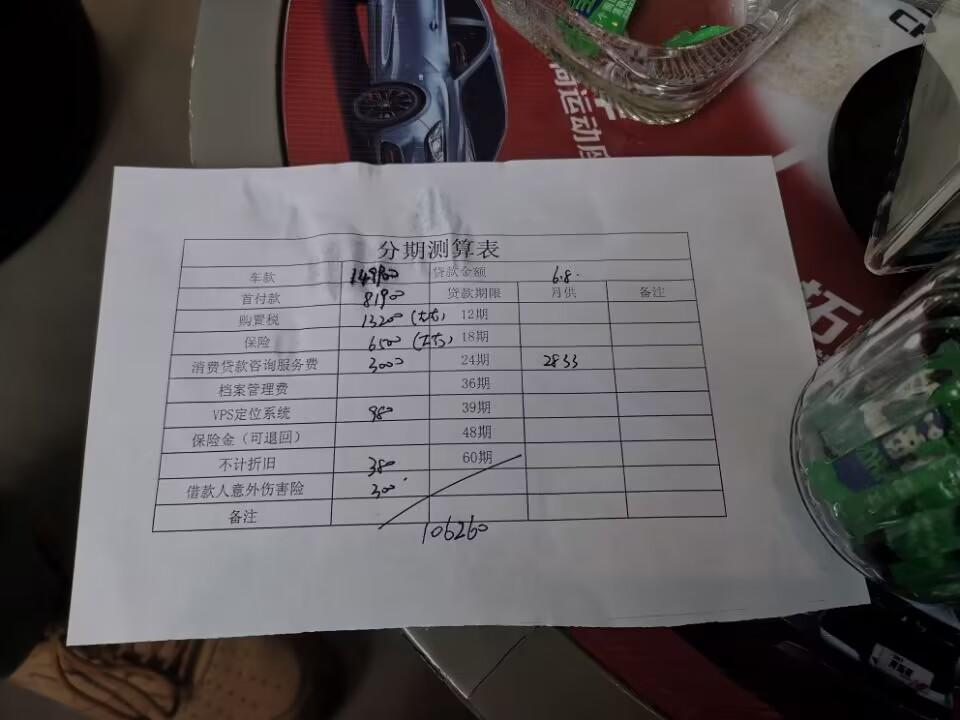 分期测算表
车款 149900 贷款金额 6.8.
首付款 81900 贷款期限 月供 备注
购置税 13200 (左右) 12期
保险 6500 (左右) 18期
消费贷款咨询服务费 3000 24期 2833
档案管理费 36期
VPS定位系统 980 39期
保险金（可退回） 48期
不计折旧 380 60期
借款人意外伤害险 300
备注
106260